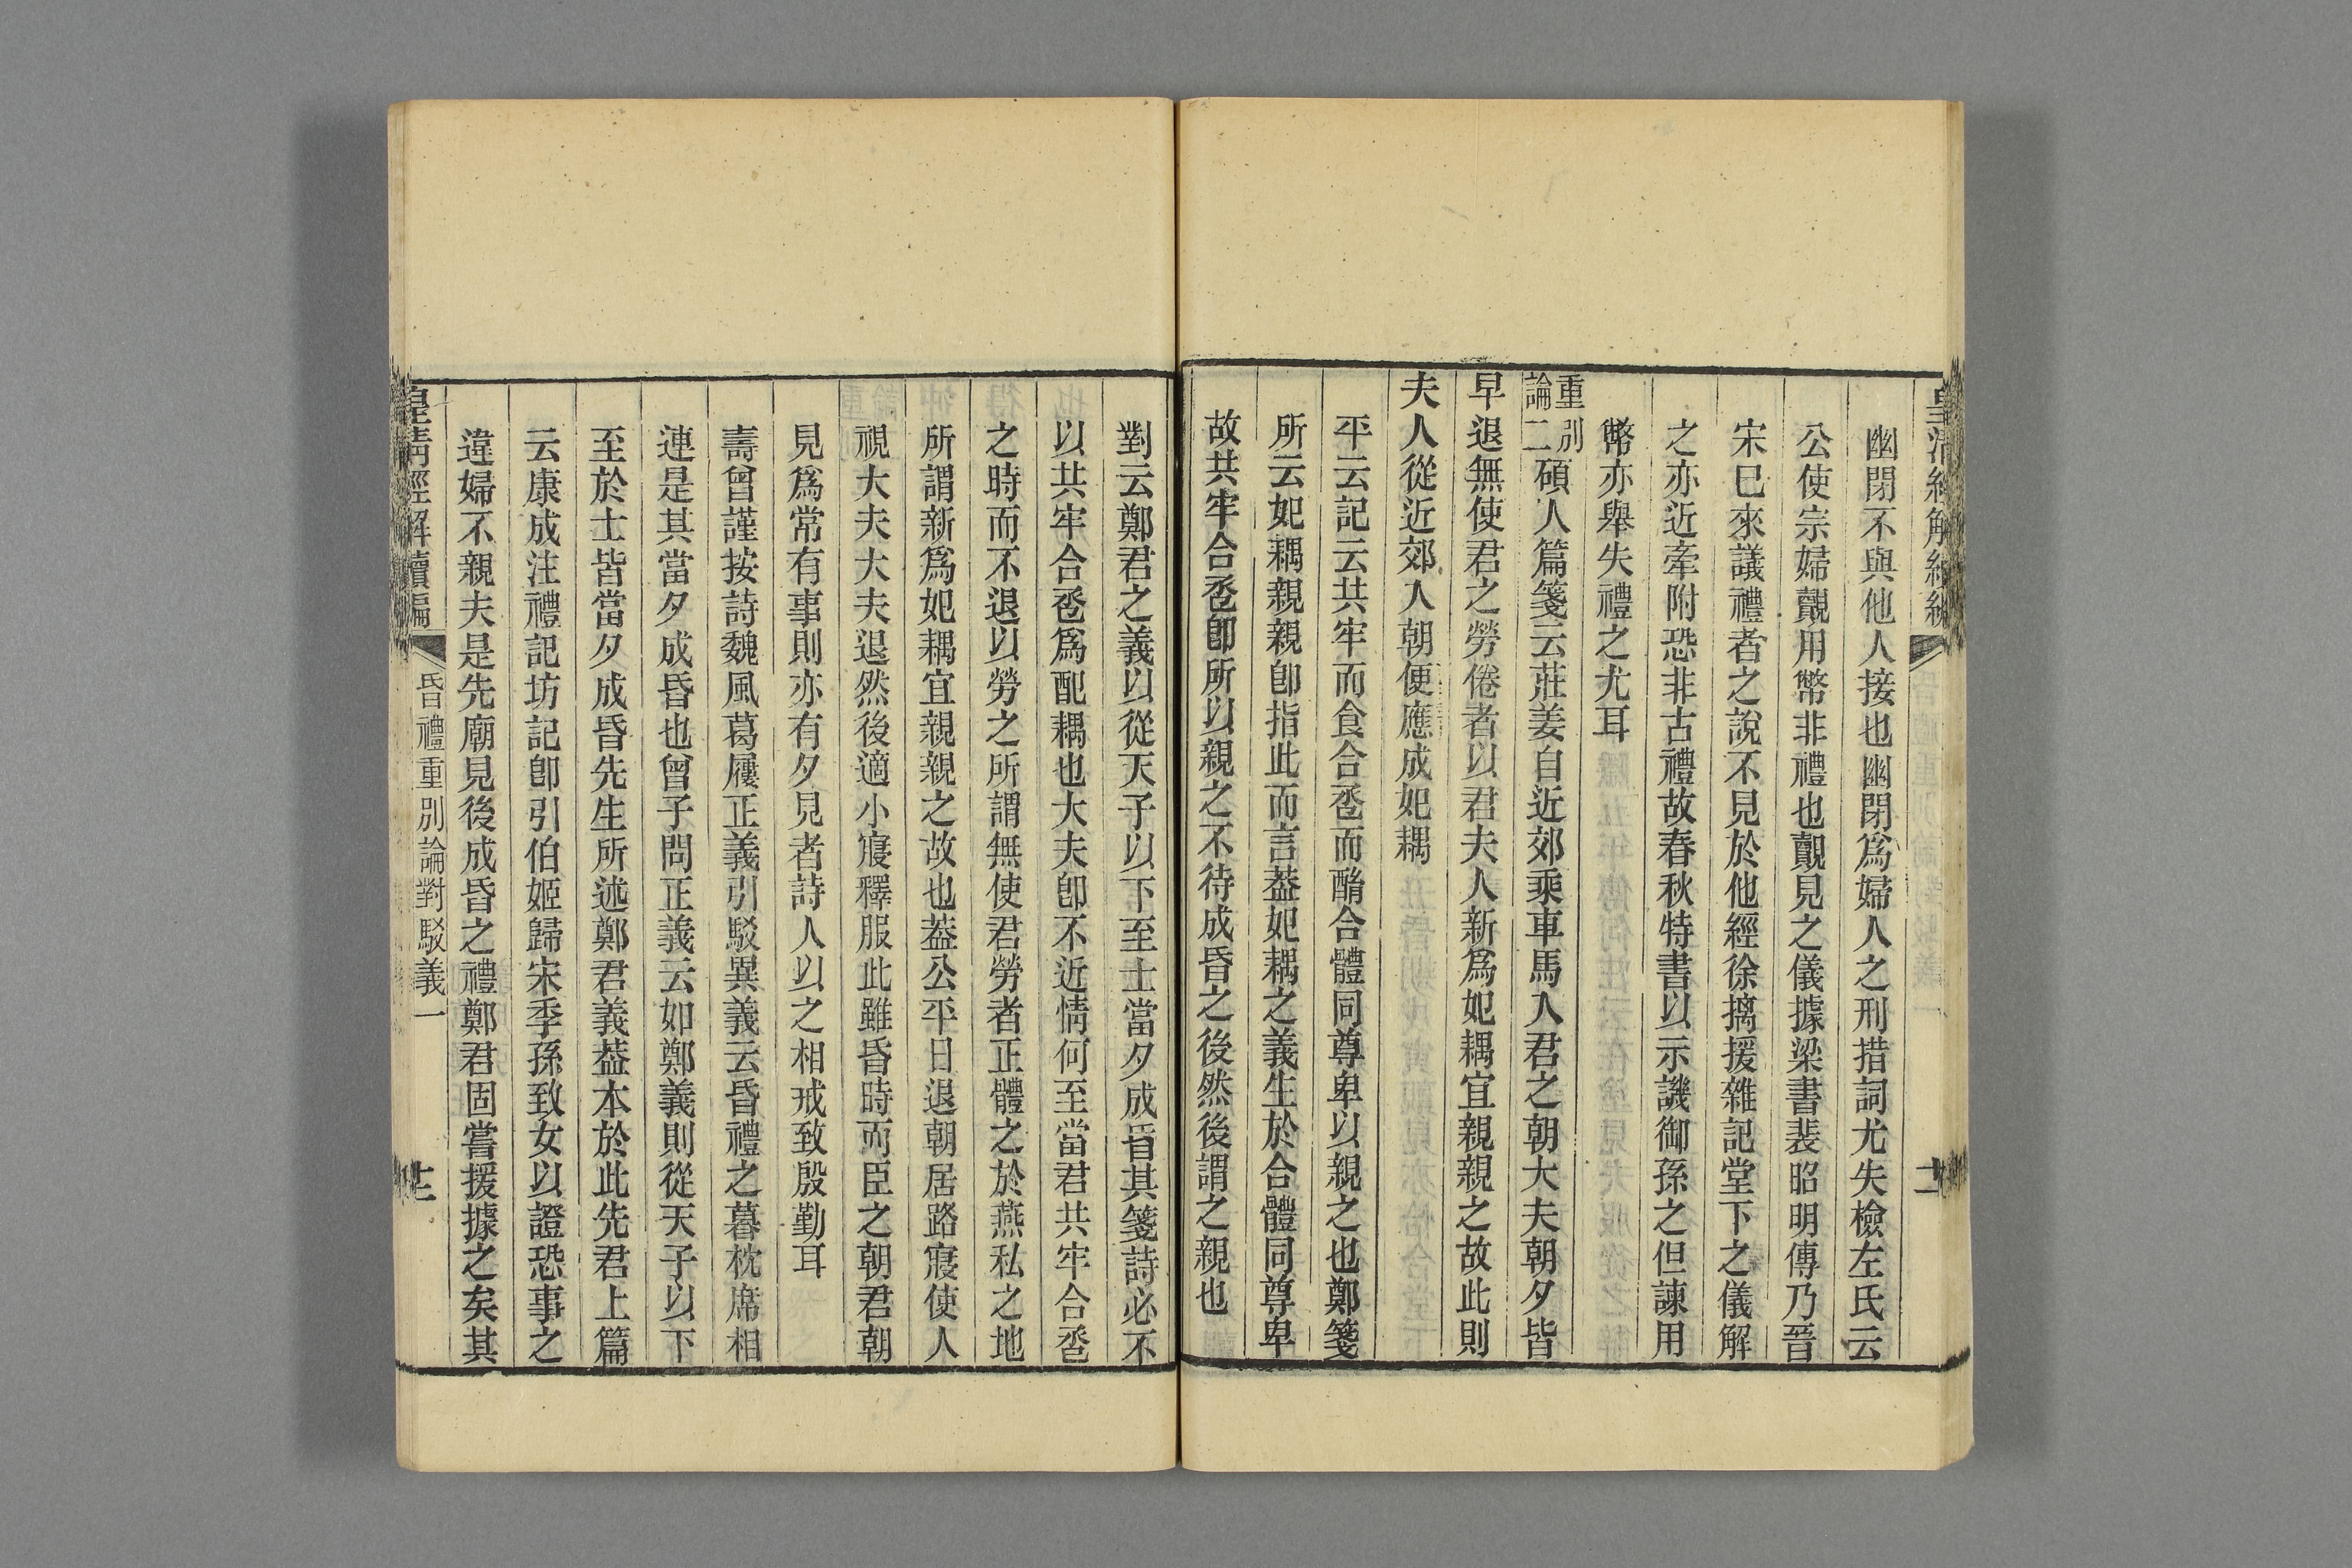 幽閉不與他人接也幽閉爲婦人之刑措詞尤失檢左氏云
公使宗婦覿用幣非禮也覿見之儀據梁書裴昭明傳乃晉
宋巳來議禮者之說不見於他經徐擒援雜記堂下之儀解
之亦近牽附恐非古禮故春秋特書以示譏御孫之但諫用
幣亦舉失禮之尤耳
重別論二碩人篇箋云莊姜自近郊乘車馬入君之朝大夫朝夕皆
早退無使君之勞倦者以君夫人新爲妃耦宜親親之故此則
夫人從近郊入朝便應成妃耦
平云記云共牢而食合巹而酳合體同尊卑以親之也鄭箋
所云妃耦親親卽指此而言葢妃耦之義生於合體同尊卑
故共牢合巹卽所以親之不待成昏之後然後謂之親也
對云鄭君之義以從天子以下至士當夕成昏其箋詩必不
以共牢合巹爲配耦也大夫卽不近情何至當君共牢合巹
之時而不退以勞之所謂無使君勞者正體之於燕私之地
所謂新爲妃耦宜親親之故也葢公平日退朝居路寢使人
視大夫大夫退然後適小寢釋服此雖昏時而臣之朝君朝
見爲常有事則亦有夕見者詩人以之相戒致殷勤耳
壽曾謹按詩魏風葛屨正義引駁異義云昏禮之暮枕席相
連是其當夕成昏也曾子問正義云如鄭義則從天子以下
至於士皆當夕成昏先生所述鄭君義葢本於此先君上篇
云康成注禮記坊記卽引伯姬歸宋季孫致女以證恐事之
違婦不親夫是先廟見後成昏之禮鄭君固嘗援據之矣其
皇清經解續編
昏禮重別論對駁義一